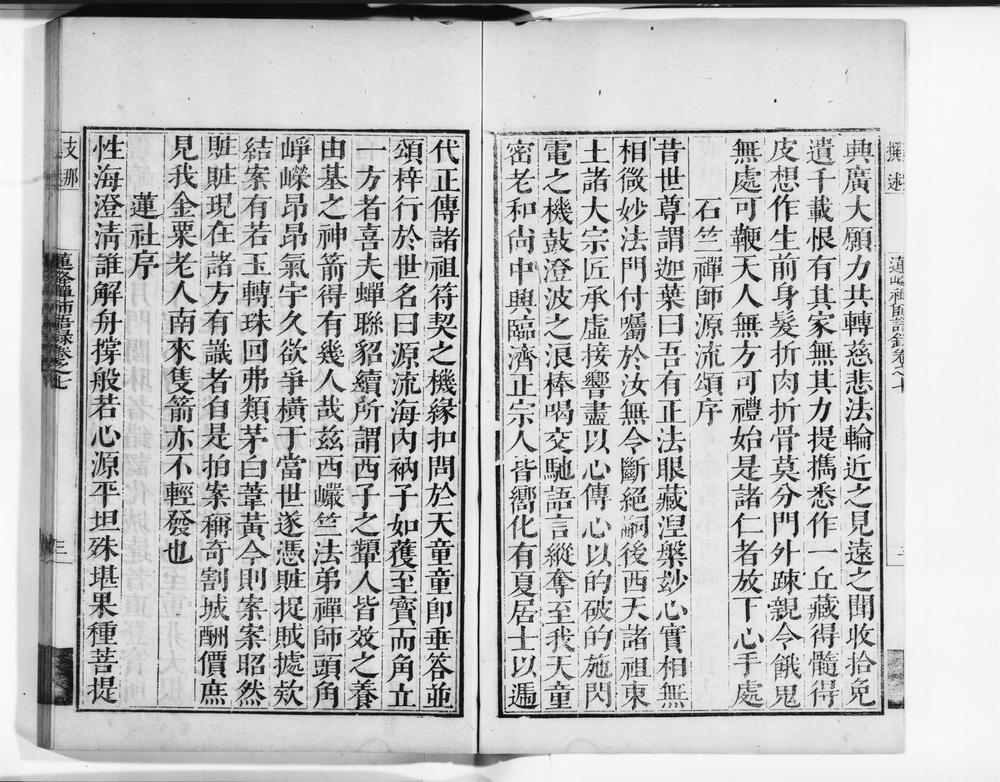 撰述
蓮峰禪師語錄卷之七
三
興廣大願力共轉慈悲法輪近之見遠之聞收拾免
遺千載恨有其家無其力提攜悉作一丘藏得髓得
皮想作生前身髮折肉折骨莫分門外疎親令餓鬼
無處可鞭天人無方可禮始是諸仁者放下心手處
石竺禪師源流頌序
昔世尊謂迦葉曰吾有正法眼藏涅槃玅心實相無
相微妙法門付囑於汝無令斷絕嗣後西天諸祖東
土諸大宗匠承虛接響盡以心傳心以的破的施閃
電之機鼓澄波之浪棒喝交馳語言縱奪至我天童
密老和尚中興臨濟正宗人皆嚮化有夏居士以遍
代正傳諸祖符契之機緣扣問於天童童卽垂答並
頌梓行於世名曰源流海內衲子如獲至寶而角立
一方者喜夫蟬聯貂續所謂西子之顰人皆效之養
由基之神箭得有幾人哉茲西巘竺法弟禪師頭角
崢嶸昂昂氣宇久欲爭橫于當世遂憑賍捉賊據欵
結案有若玉轉珠回弗類茅白葦黃今則案案昭然
賍賍現在諸方有識者自是拍案稱奇割城酬價庶
見我金粟老人南來隻箭亦不輕發也
蓮社序
性海澄清誰解舟撐般若心源平坦殊堪果種菩提
支那
蓮峰禪師語錄卷之七
三